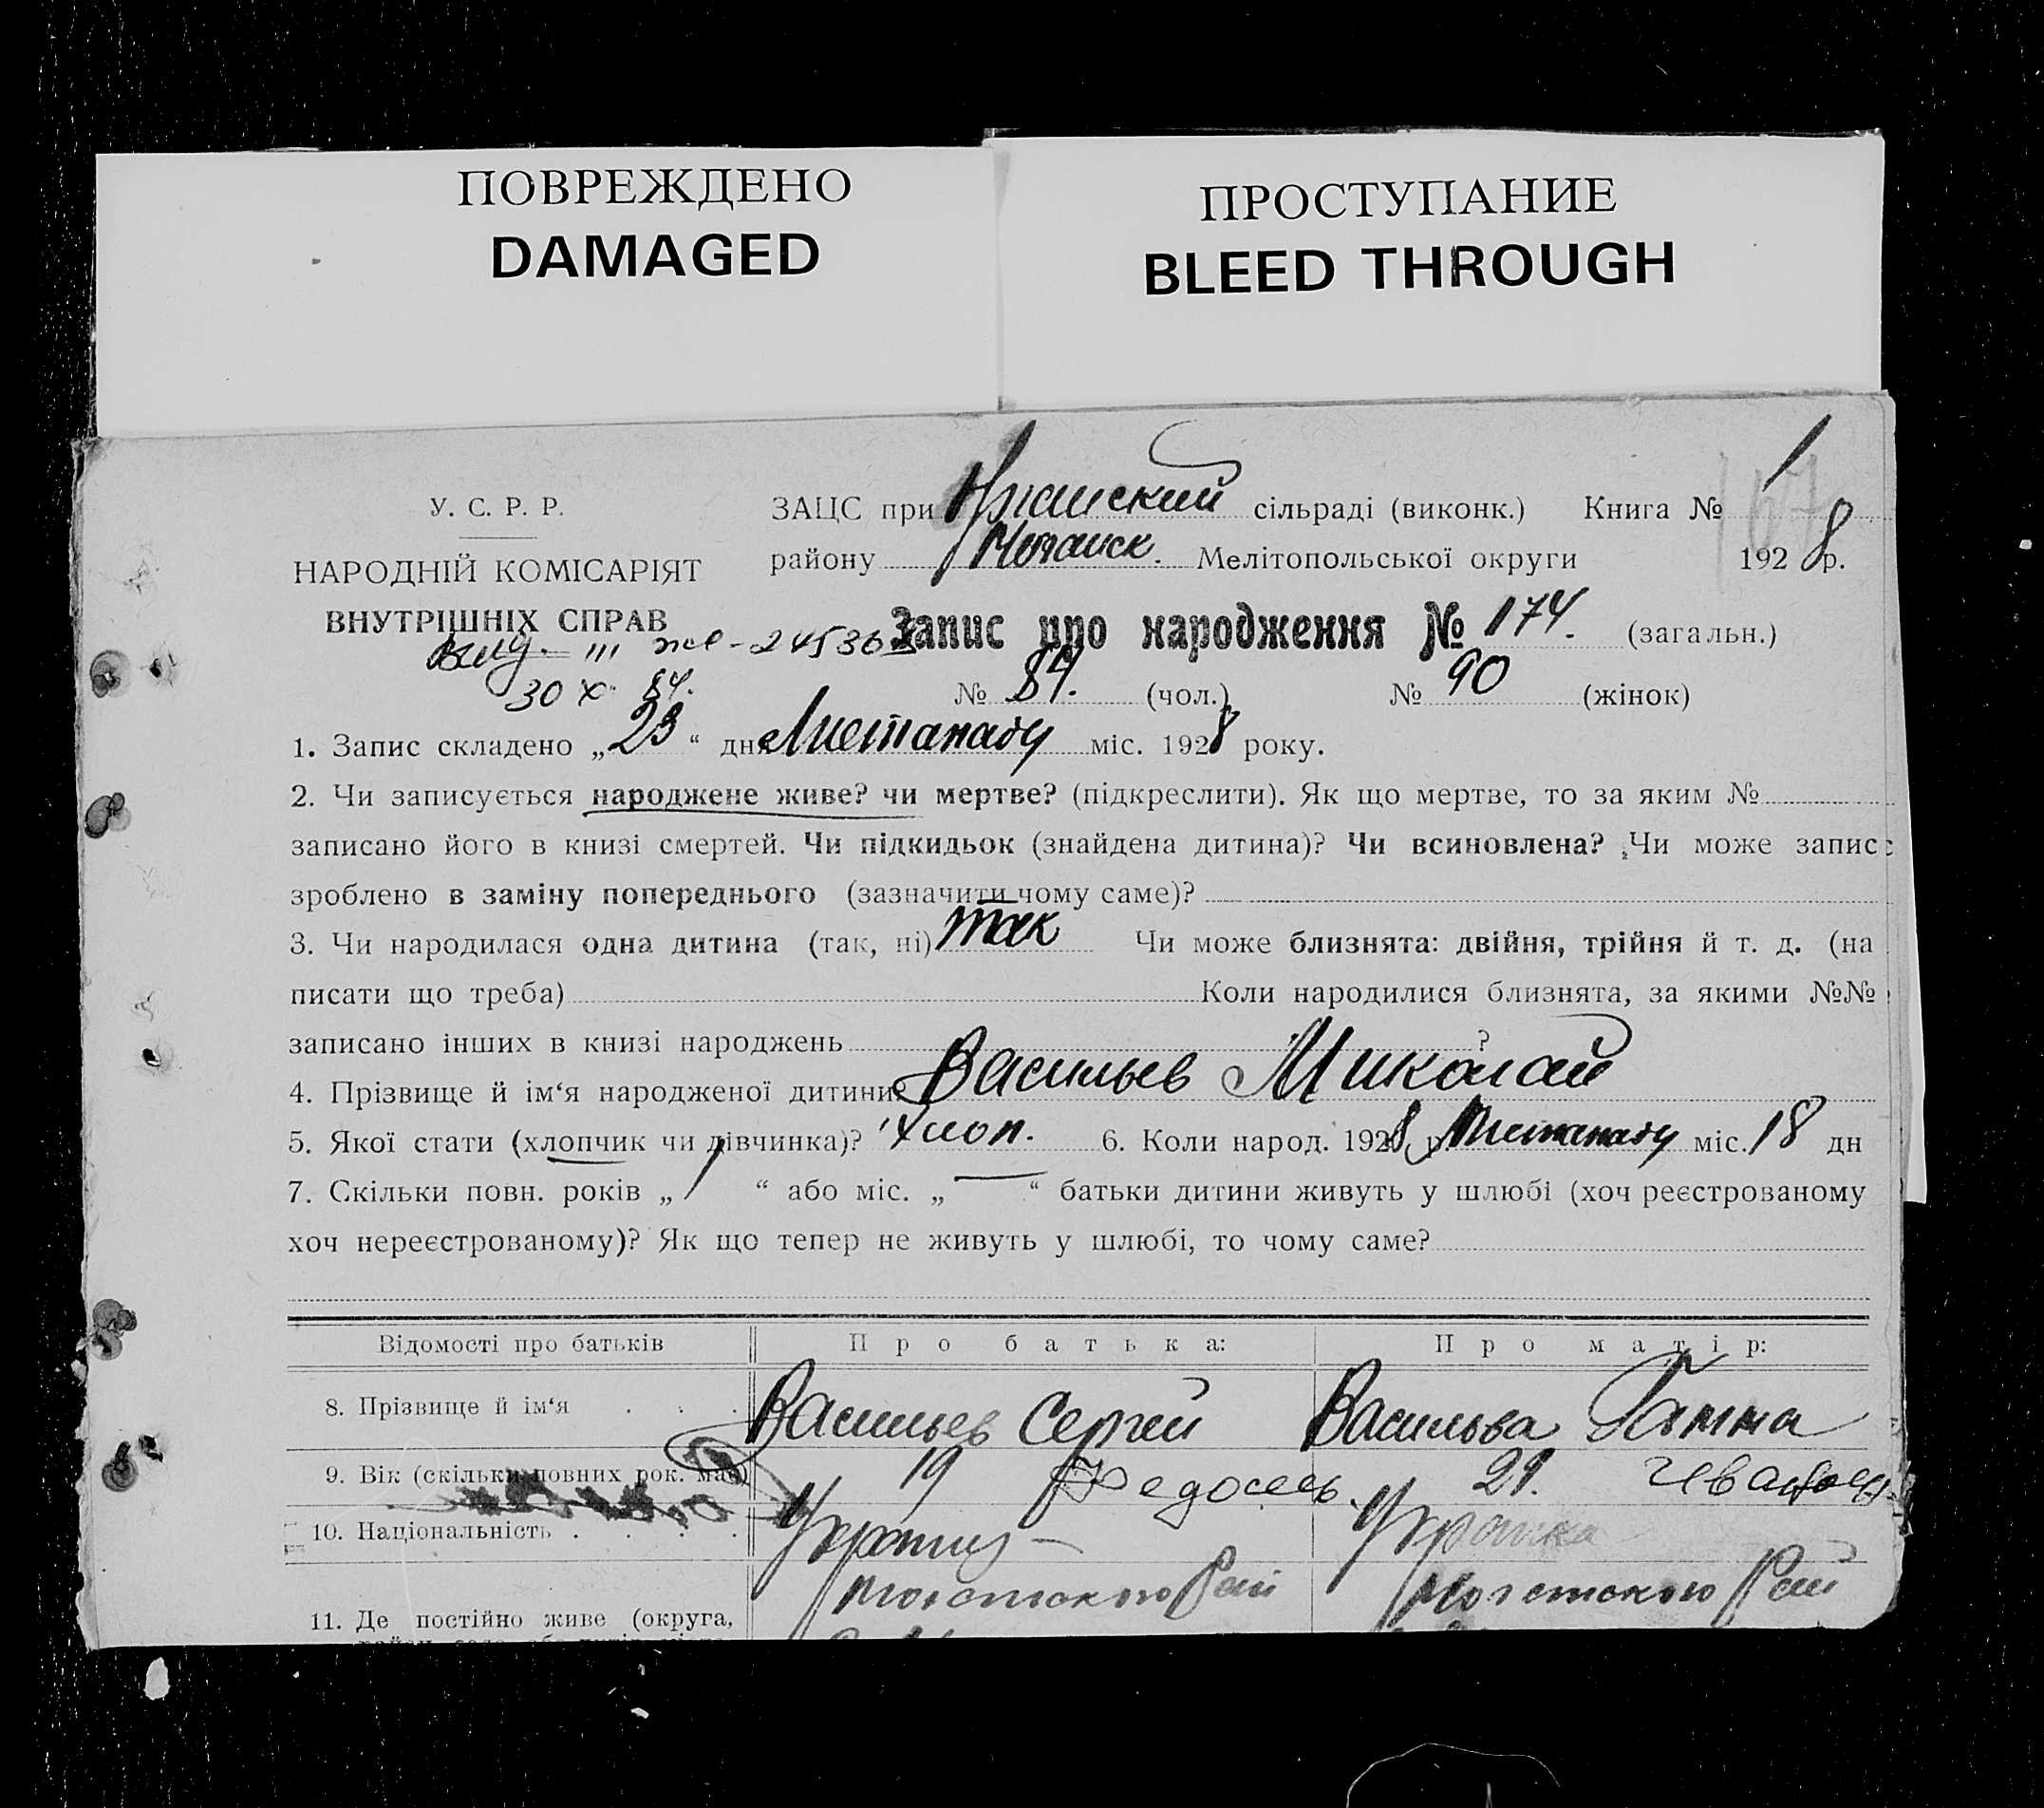 ПОВРЕЖДЕНО
DAMAGED
ПРОСТУПАНИЕ
BLEED THROUGH
У. С. Р. Р.
НАРОДНІЙ КОМІСАРІЯТ
ВНУТРІШНІХ СПРАВ
ЗАЦС при сільраді (виконк.) Книга № 1
району Мелітопольської округи 1928 р.
Запис про народження № 174. (загальн.)
№ 84. (чол.) № 90 (жінок)
30 X 84.
1. Запис складено „23“ дня Листападу міс. 1928 року.
2. Чи записується народжене живе? чи мертве? (підкреслити). Як що мертве, то за яким №
записано його в книзі смертей. Чи підкидьок (знайдена дитина)? Чи всиновлена? Чи може запис
зроблено в заміну попереднього (зазначити чому саме)?
3. Чи народилася одна дитина (так, ні) так Чи може близнята: двійня, трійня й т. д. (на
писати що треба) Коли народилися близнята, за якими №№
записано інших в книзі народжень ?
4. Прізвище й ім‘я народженої дитини: Васильев Миколай
5. Якої стати (хлопчик чи дівчинка)? Хлоп. 6. Коли народ. 1928 р. Листападу міс. 18 дн
7. Скільки повн. років „ 1 “ або міс. „ — “ батьки дитини живуть у шлюбі (хоч реєстрованому
хоч нереєстрованому)? Як що тепер не живуть у шлюбі, то чому саме?
Відомості про батьків Про батька: Про матір:
8. Прізвище й ім‘я . . . Васильев Сергей Васильва Ганна
9. Вік (скільки повних рок. має) 19 29.
10. Національність . . . . Украинка
11. Де постійно живе (округа,